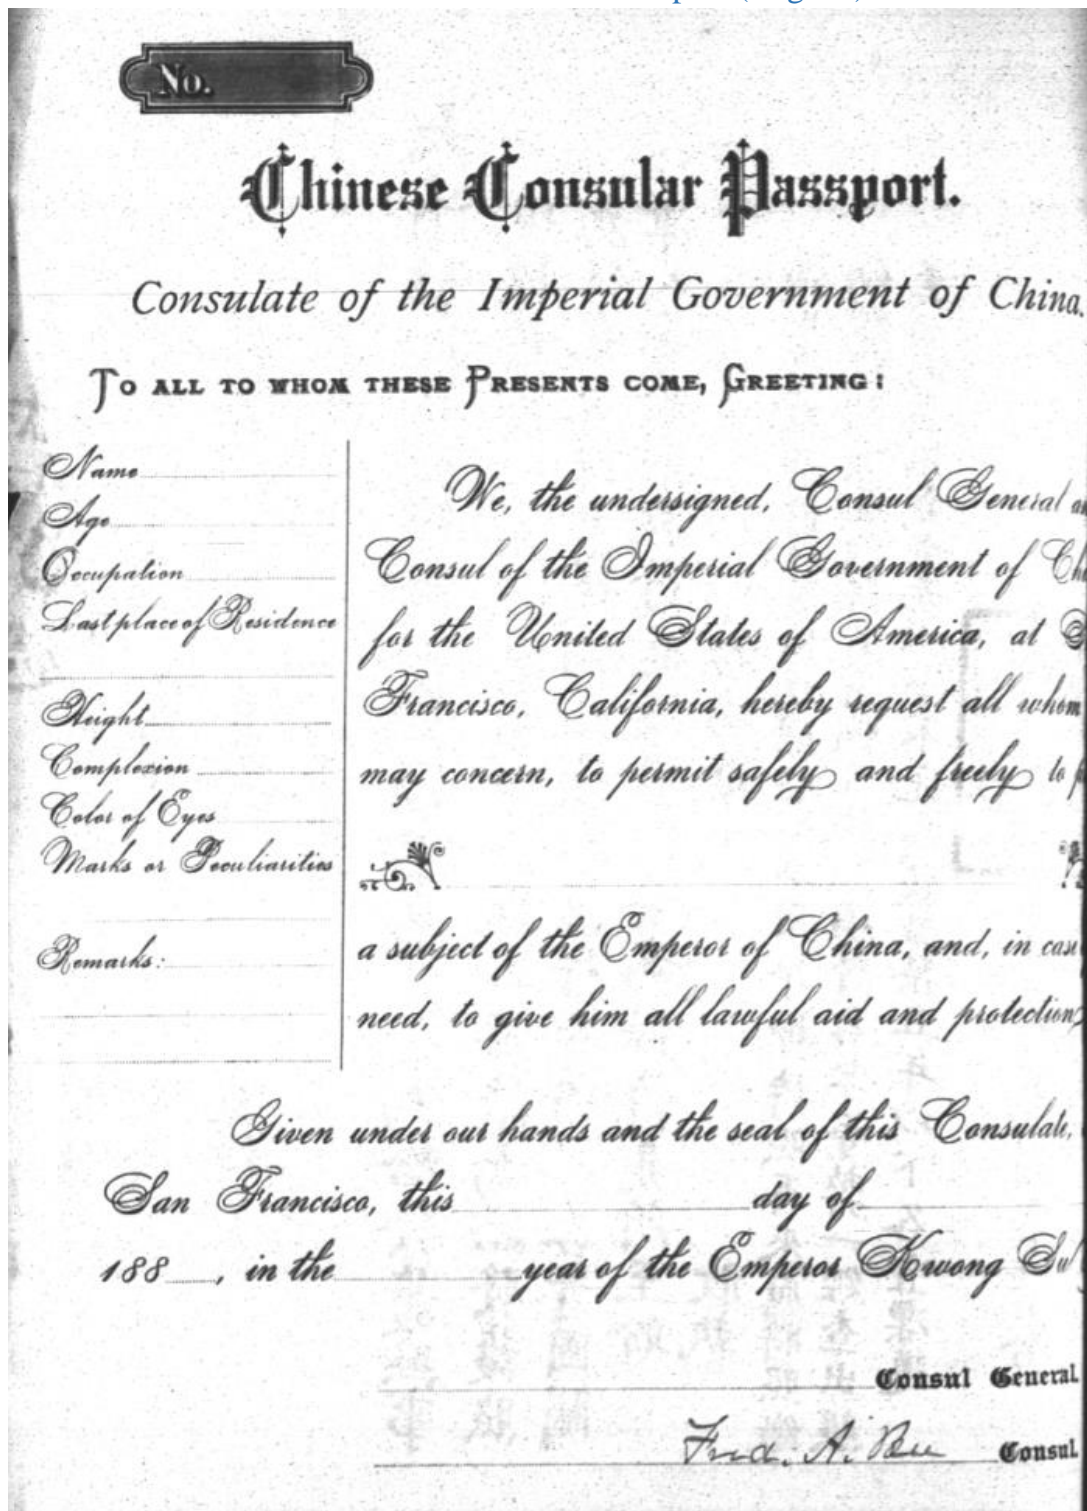 No.
Chinese Consular Passport.
Consulate of the Imperial Government of China.
To all to whom these Presents come, Greeting:
Name
Age
Occupation
Last place of Residence
Height
Complexion
Color of Eyes
Marks or Peculiarities
Remarks:
We, the undersigned, Consul General
Consul of the Imperial Government of
for the United States of America, at
Francisco, California, hereby request all whom
may concern, to permit safely and freely to
a subject of the Emperor of China, and, in case
need, to give him all lawful aid and protection
Given under our hands and the seal of this Consulate,
San Francisco, this day of
188 , in the year of the Emperor Kwong
Consul General.
Fred. A. Bee Consul.